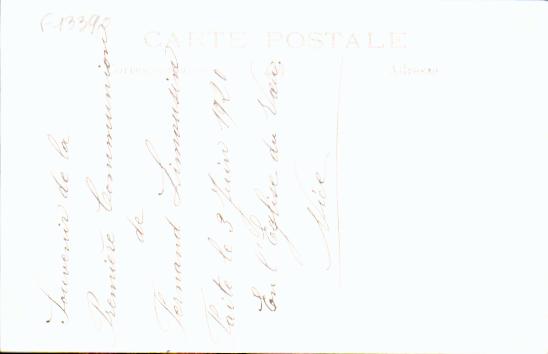 F 13392
CARTE POSTALE
Correspondance
Adresse
Souvenir de la
Première Communion
de
Fernand Limousin
Faite le 3 Juin 1920
En l'Eglise du